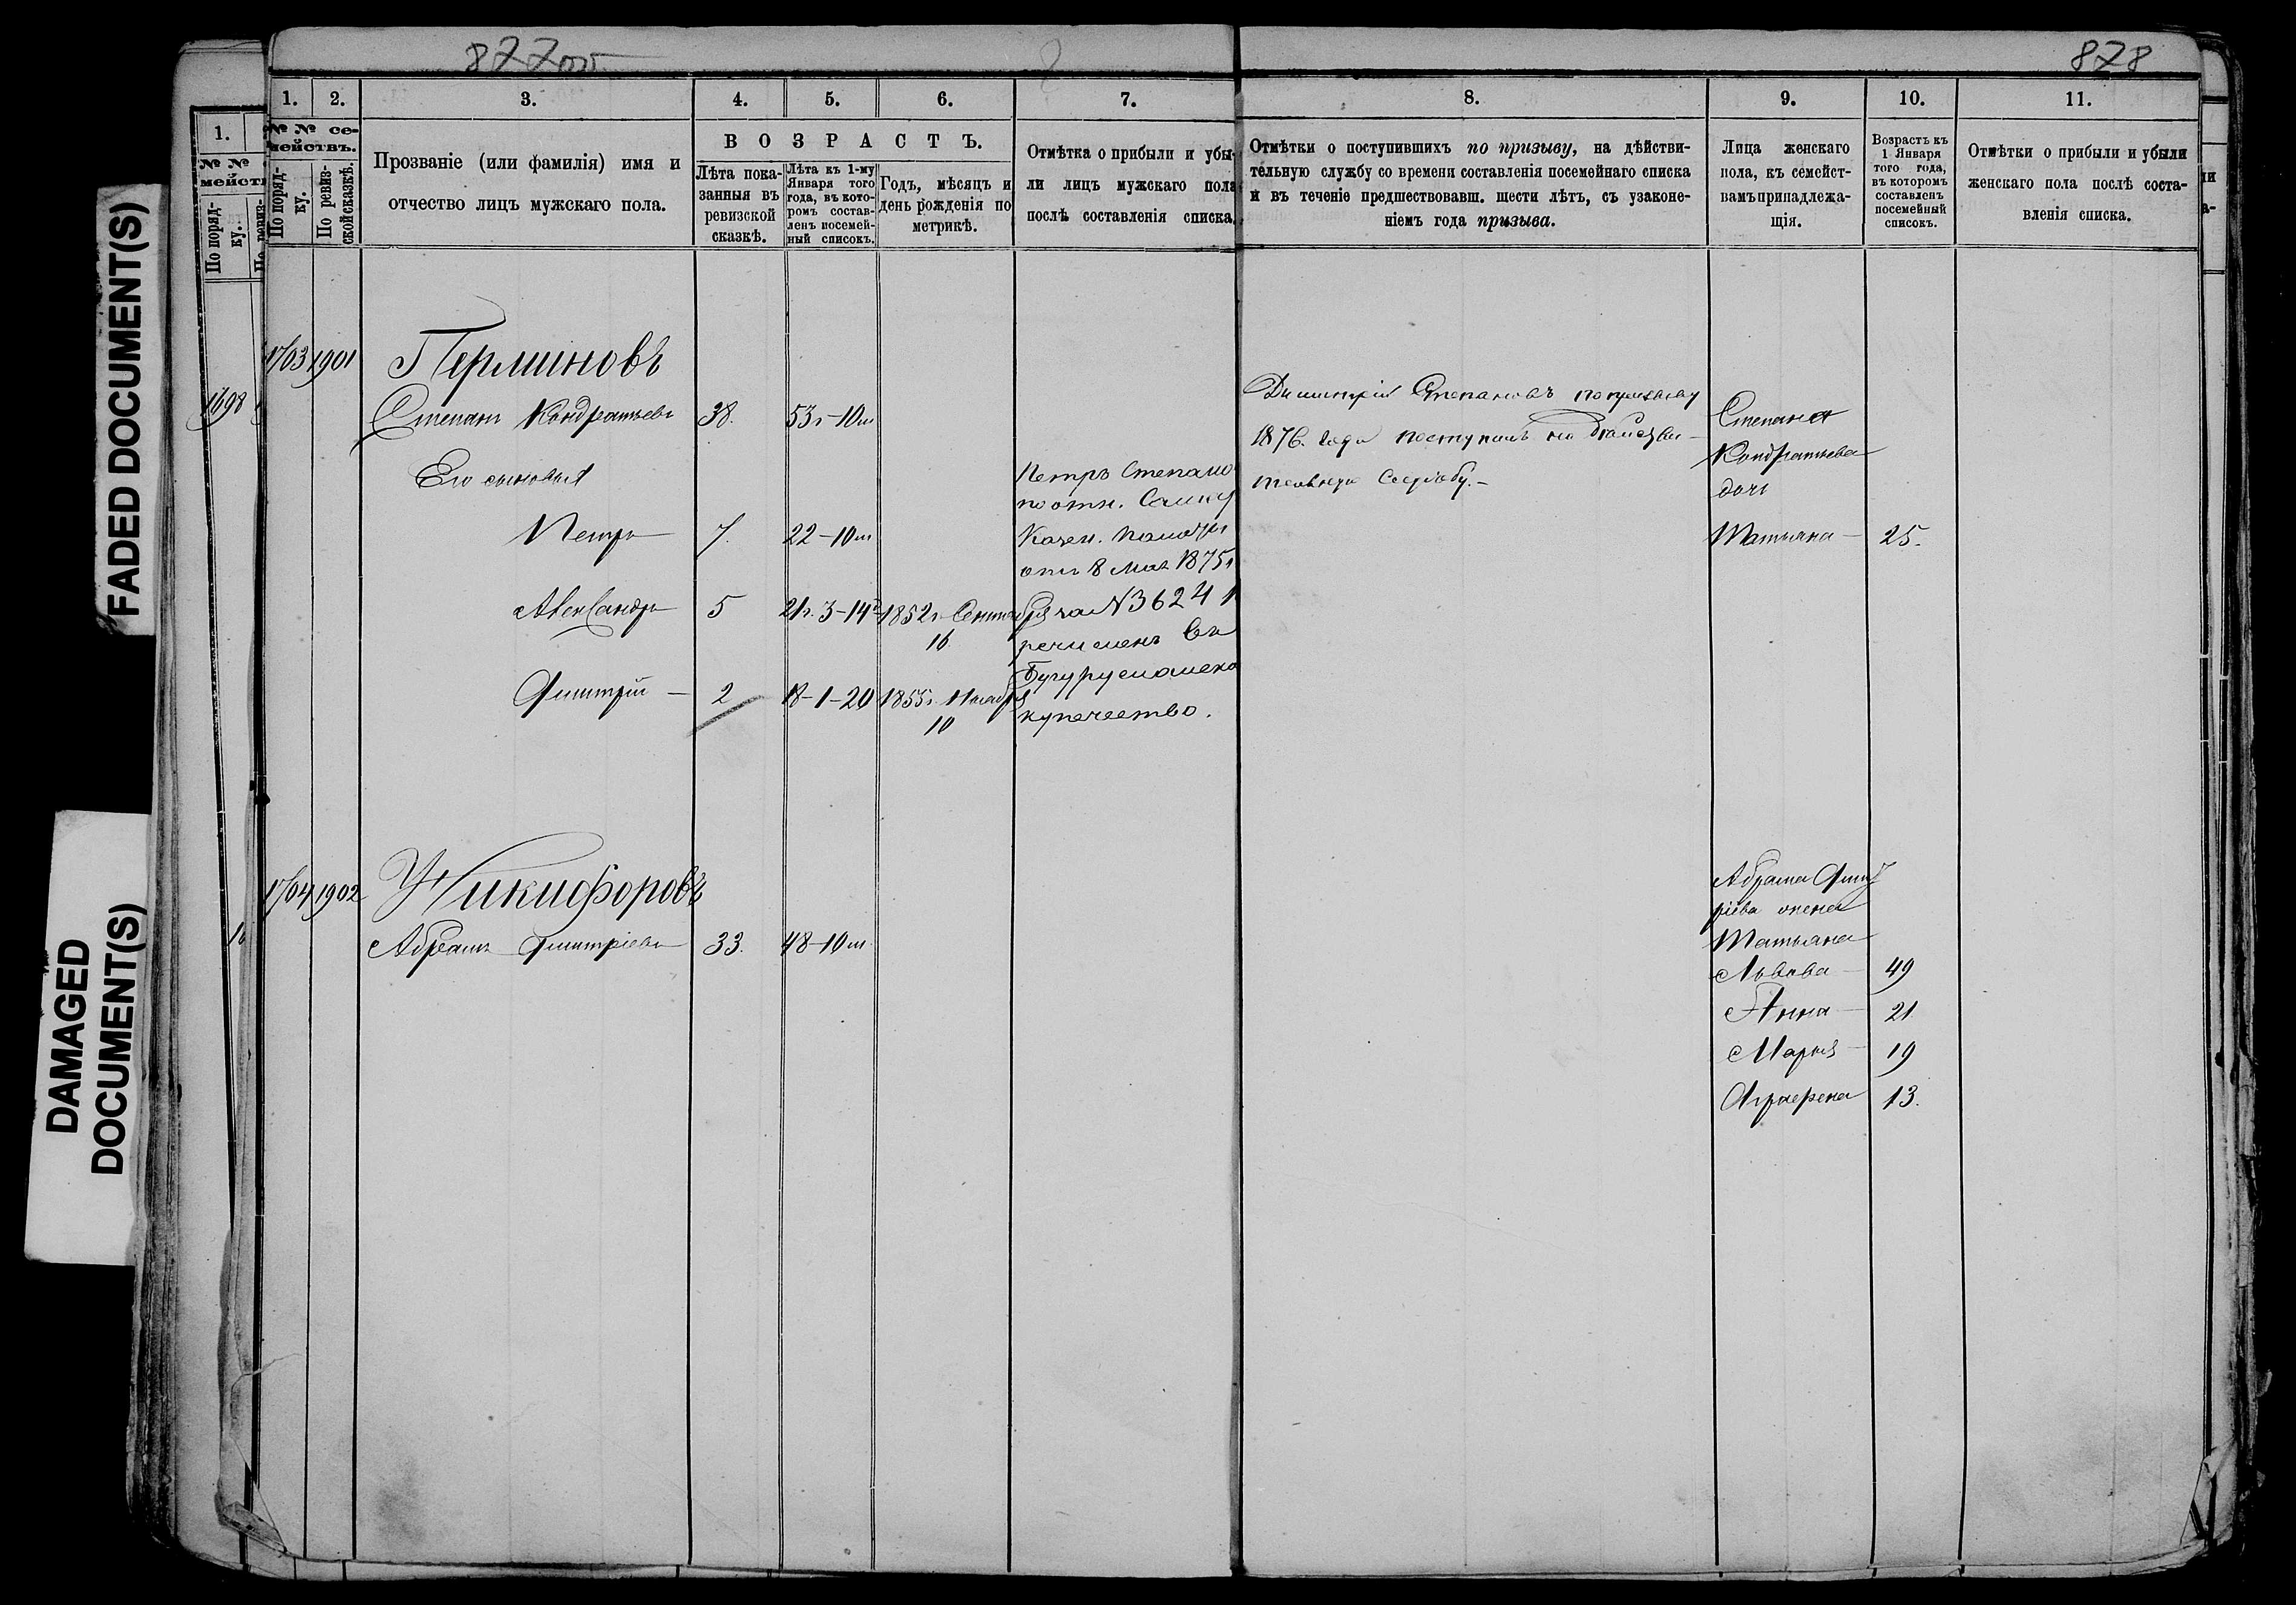 FADED DOCUMENT(S)
DAMAGED
DOCUMENT(S)
877об
878
1.
№ №
мейств
По поряд-
ку.
1698
1.
2.
3.
4.
5.
6.
7.
8.
9.
10.
11.
№ № се-
мействъ.
По поряд-
ку.
По ревиз-
ской сказкѣ.
Прозваніе (или фамилія) имя и
отчество лицъ мужскаго пола.
ВОЗРАСТЪ.
Лѣта пока-
занныя въ
ревизской
сказкѣ.
Лѣта къ 1-му
Января того
года, въ кото-
ромъ состав-
ленъ посемей-
ный списокъ.
Годъ, мѣсяцъ и
день рожденія по
метрикѣ.
Отмѣтка о прибыли и убы-
ли лицъ мужскаго пола
послѣ составленія списка.
Отмѣтки о поступившихъ по призыву, на дѣйстви-
тельную службу со времени составленія посемейнаго списка
и въ теченіе предшествовавш. шести лѣтъ, съ узаконе-
ніемъ года призыва.
Лица женскаго
пола, къ семейст-
вамъ принадлежа-
щія.
Возрастъ къ
1 Января
того года,
въ которомъ
составленъ
посемейный
списокъ.
Отмѣтки о прибыли и убыли
женскаго пола послѣ соста-
вленія списка.
1703 1901 Перминовъ
Степанъ Кондратьевъ 38. 53г-10м
Его сыновья
Петръ 7. 22-10м
Александръ 5 21г. 3-14 1852г. Сентября
16
Дмитрій 2 18-1-20 1855г. Ноября
10
Петръ Степано
по отн. Самар
Казен. Палаты
отъ 8 Мая 1875г
за N 3624
речисленъ въ
Бугурусланско
купечество.
Димитрій Степановъ по призыву
1876. года поступилъ на дѣйстви-
тельную службу.-
Степана
Кондратьева
дочь
Татьяна 25.
1704 1902 Никифоровъ
Абрамъ Дмитріевъ 33. 48-10м
Абрама Дмит
ріева жена
Татьяна
Львова 49
Анна 21
Марья 19
Аграфена 13.